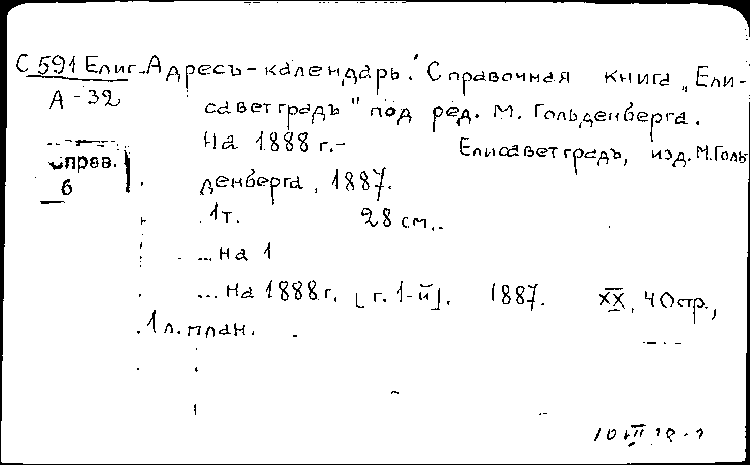 С 591 Елиг. Адресъ-календарь. Справочная книга „Ели-
А-32 саветградъ" под ред. М. Гольденберга.
На 1888 г.- Елисаветградъ, изд. М. Голь
Справ. денберга, 1887.
6
1т. 28 см.
...на 1
...на 1888 г. [г. 1-й]. 1887. XX, 40 стр.,
1 л. план.